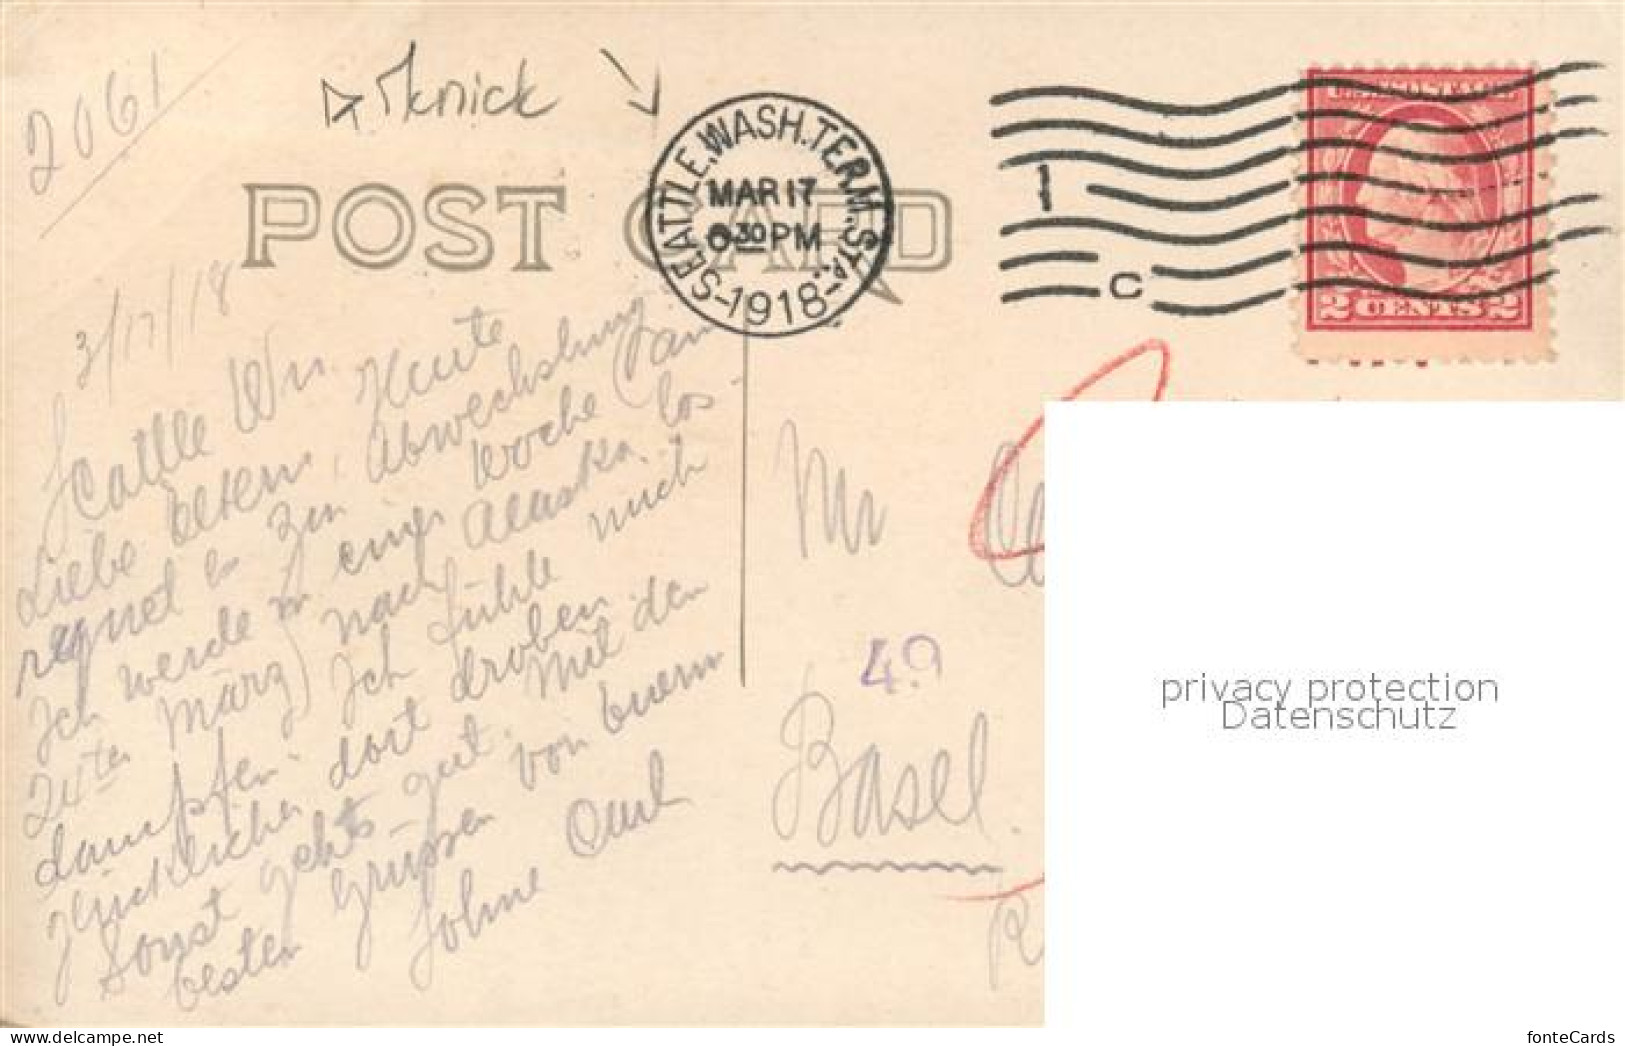 2061
knick
POST CARD
SEATTLE, WASH. TERM. STA.
MAR 17
30 PM
1918
1
C
2 CENTS 2
3/17/18
Seattle Wn.
Liebe Eltern, Heute
regnet es zur Abwechslung
Ich werde in einer Woche (am
24ten März) nach Alaska los
dampfen. Ich fühle mich
glücklicher dort droben
Sonst gehts gut. Mit den
besten Grüssen von buerm
Sohne Carl
Mr
49
Basel.
privacy protection
Datenschutz
www.delcampe.net
fonteCards